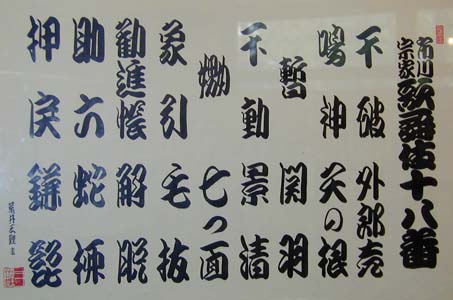 市川宗家歌舞伎十八番
不破 外郎売
鳴神 矢の根
暫 関羽
不動 景清
嫐 七つ面
象引 毛抜
勧進帳 解脱
助六 蛇柳
押戻 鎌髭